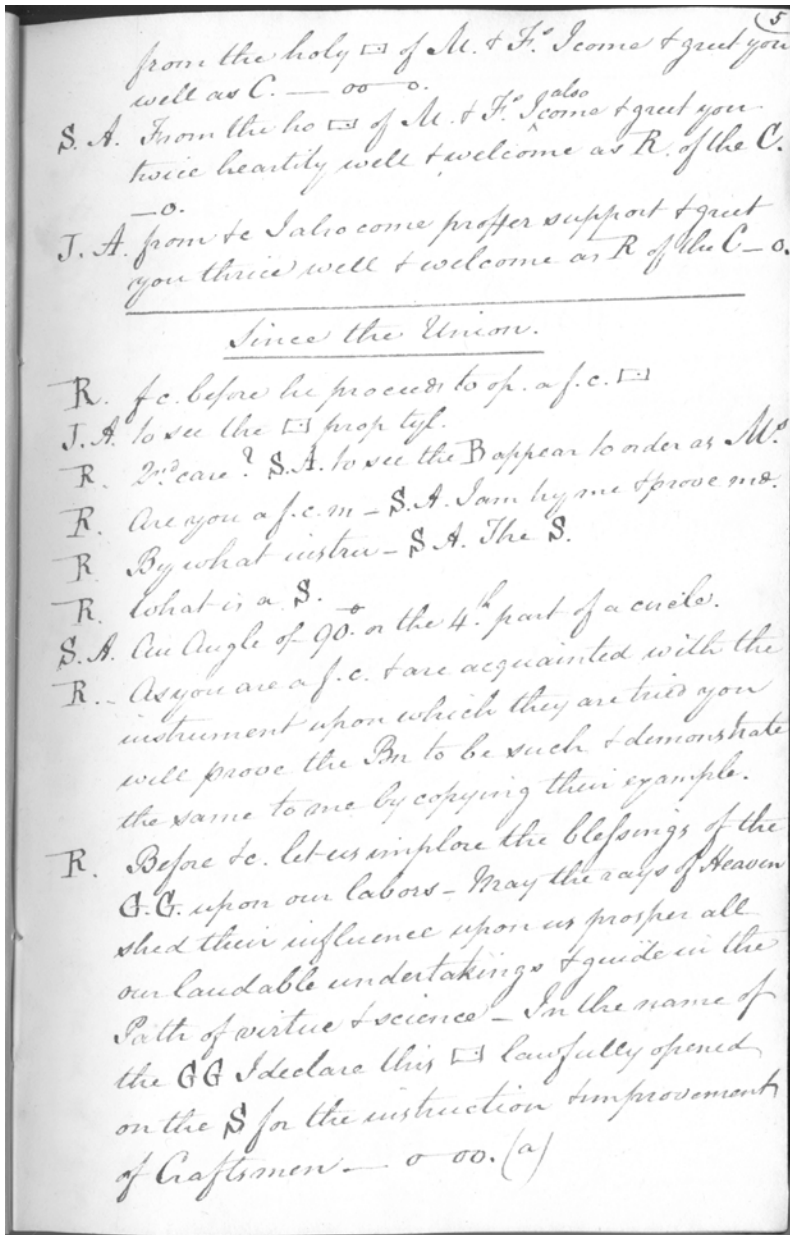 5
from the holy ▭ of M. & F.s I come & greet you
well as C. — oo o.
S. A. From the ho ▭ of M. & F.s I also come & greet you
twice heartily well & welcome as R. of the C.
— o.
J. A. from &c I also come proffer support & greet
you thrice well & welcome as R of the C — o.
Since the Union.
R. f c. before he proceeds to op. a f. c. ▭
J. A. to see the ▭ prop tyl.
R. 2nd care? S. A. to see the B appear to order as Ms
R. Are you a f. c. m — S. A. I am try me & prove me.
R By what instru — S A. The S.
R. What is a S.
S. A. An Angle of 90.° or the 4.th part of a circle.
R. — As you are a f. c. & are acquainted with the
instrument upon which they are tried you
will prove the Bn to be such & demonstrate
the same to me by copying their example.
R. Before &c. let us implore the blessings of the
G. G. upon our labors — May the rays of Heaven
shed their influence upon us prosper all
our laudable undertakings & guide in the
Path of virtue & science — In the name of
the G G I declare this ▭ lawfully opened
on the S for the instruction & improvement
of Craftsmen — o oo. (a)